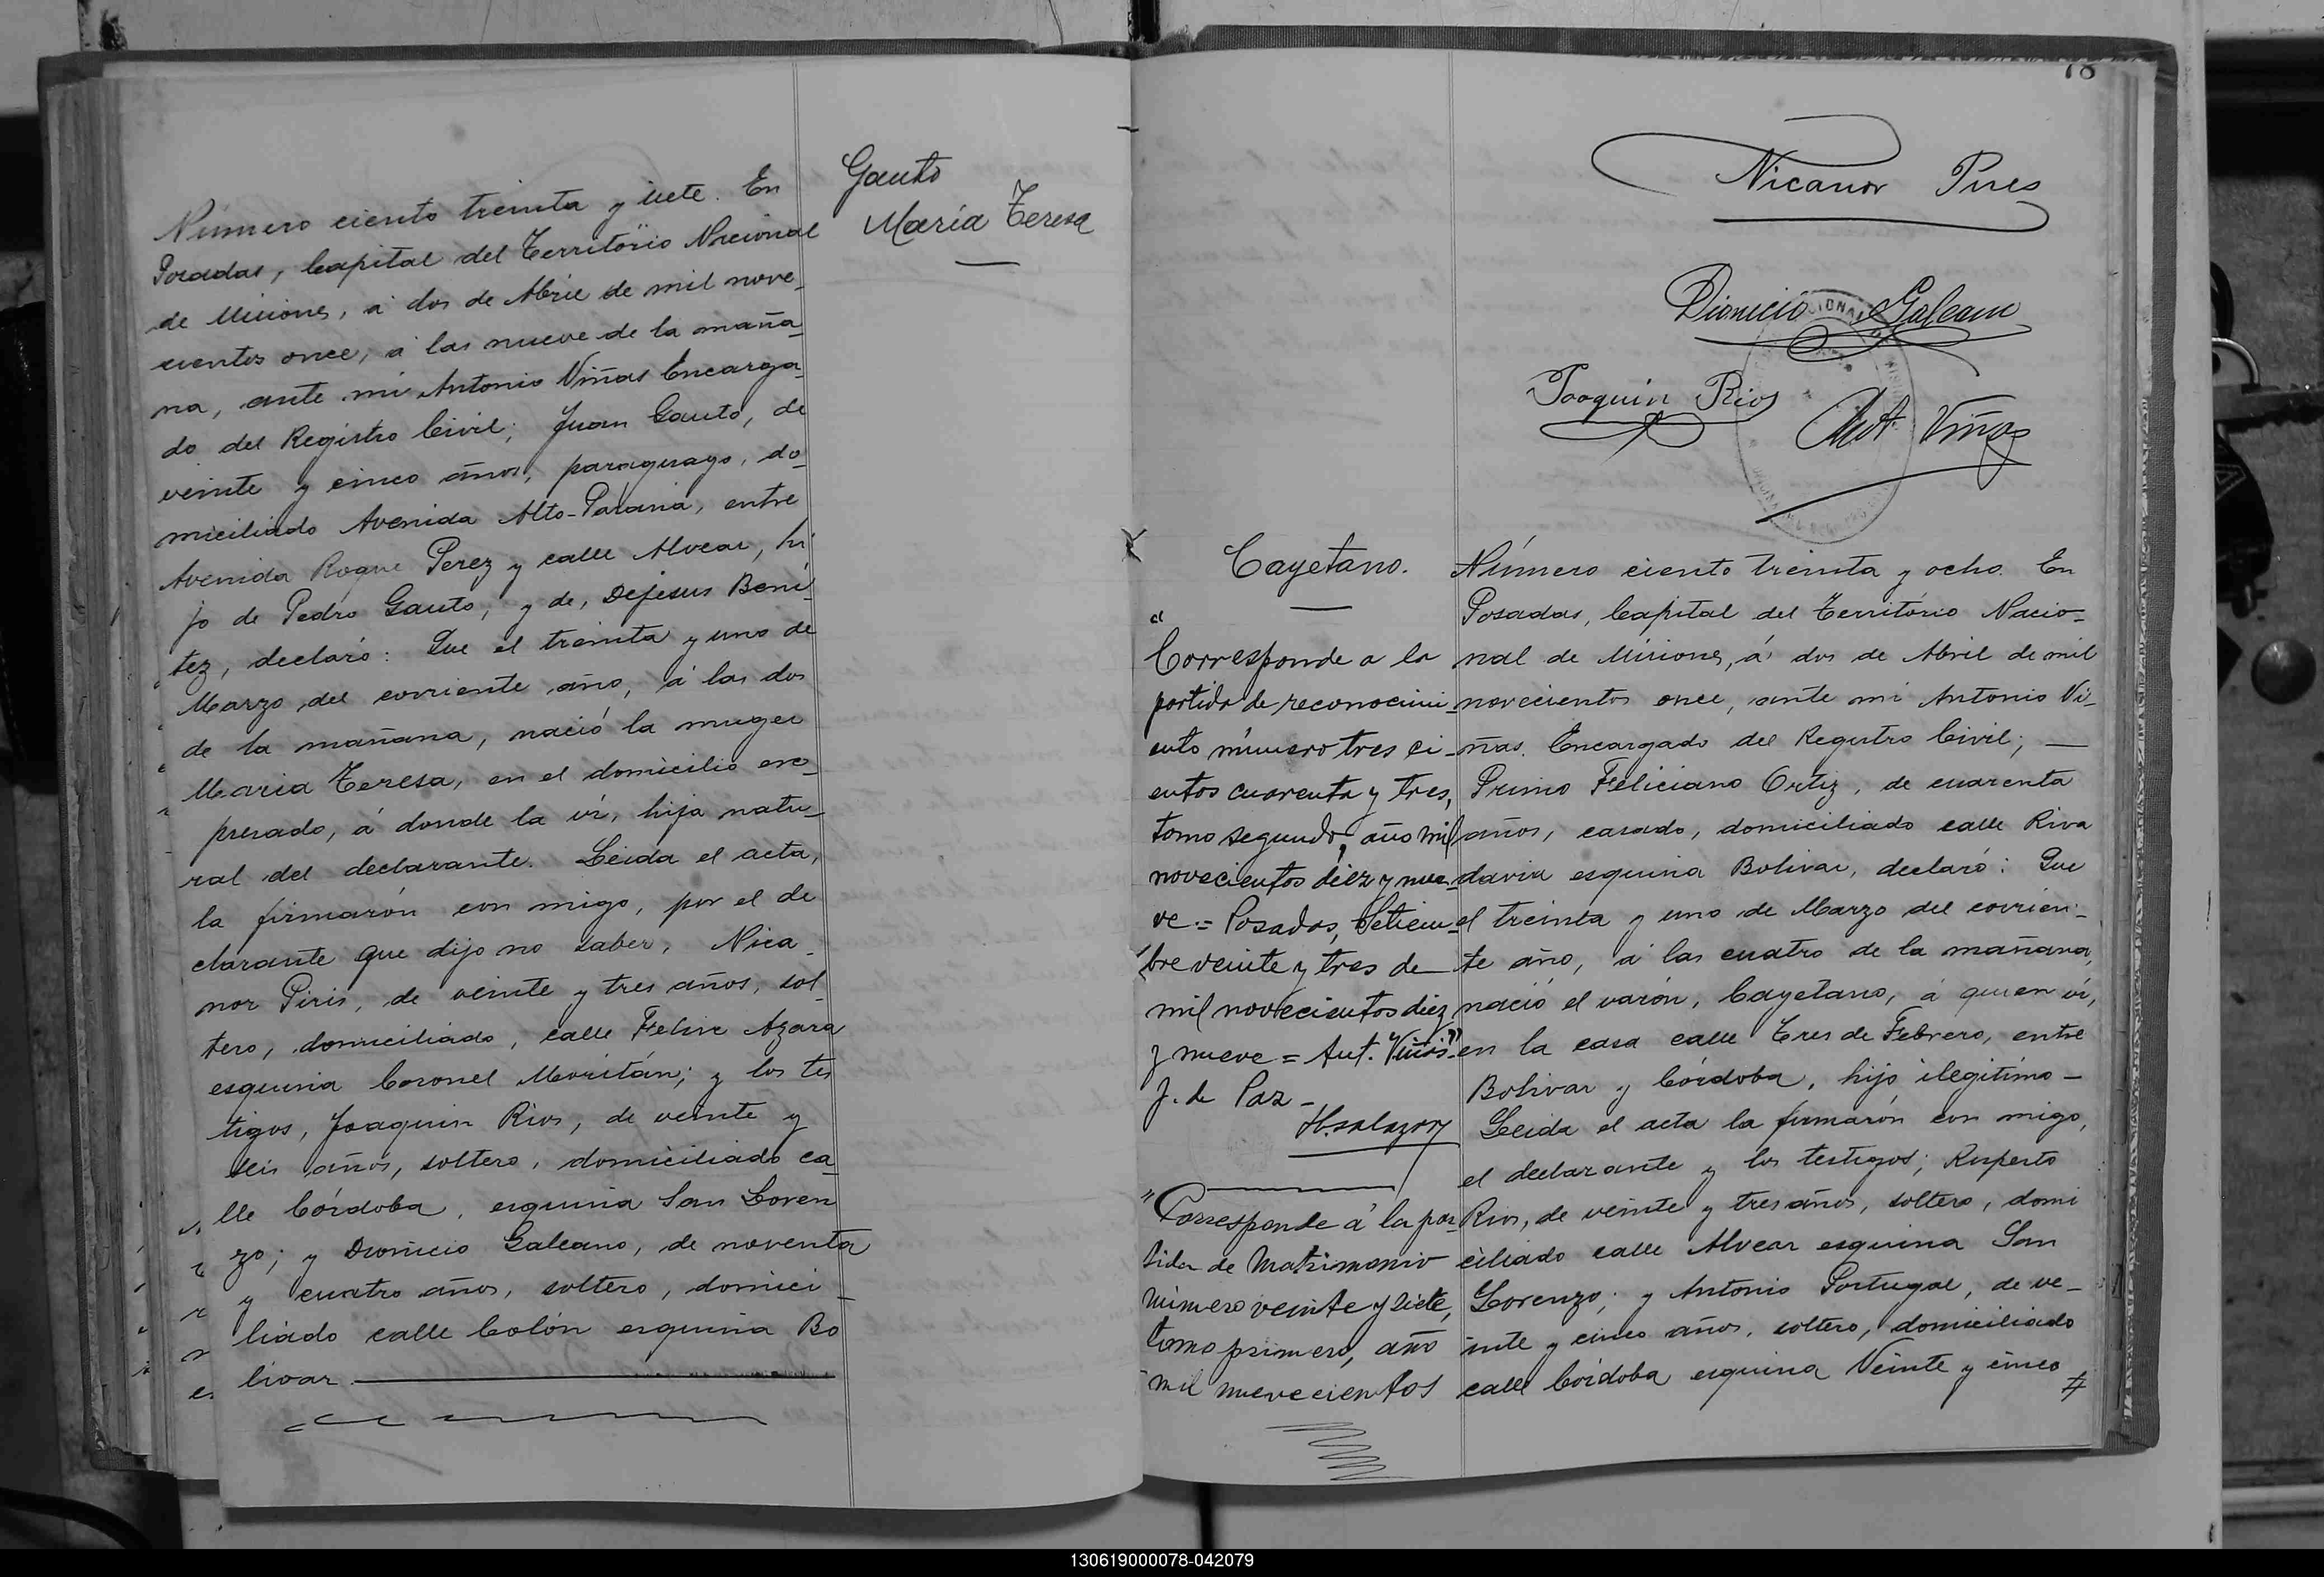 Número ciento treinta y siete. En
Posadas, Capital del Território Nacional
de Misiones, á dos de Abril de mil nove-
cientos once, á las nueve de la maña-
na, ante mi Antonio Viñas Encarga-
do del Registro Civil; Juan Gauto, de
veinte y cinco años, paraguayo, do-
miciliado Avenida Alto-Paraná, entre
Avenida Roque Perez y calle Alvear, hi
jo de Pedro Gauto, y de, Dejesus Bení-
tez, declaró: Que el treinta y uno de
Marzo del corriente año, á las dos
de la mañana, nació la muger
Maria Teresa, en el domicilio ex-
presado, á donde la ví, hija natu-
ral del declarante. Leida el acta,
la firmarón con migo, por el de
clarante que dijo no saber, Nica-
nor Piris, de veinte y tres años, sol-
tero, domiciliado, calle Felix Azara
esquina Coronel Moritán; y los tes
tigos, Joaquin Rios, de veinte y
seis años, soltero, domiciliado ca-
lle Córdoba, esquina San Loren
zo; y Dionicio Galeano, de noventa
y cuatro años, soltero, domici-
liado calle Colón esquina Bo
livar
Gauto
María Teresa
78
Nicanor Pires
Dionicio Galeano
Joaquin Rios
Ant Viñas
Cayetano.
"Corresponde a la
partida de reconocimi-
ento número tres ci-
entos cuarenta y tres,
tomo segundo, año mil
novecientos diez y nue-
ve = Posadas, Setiem-
bre veinte y tres de
mil novecientos diez
y nueve = Ant. Viñas"-
J. de Paz -
H. salazar
"Corresponde á la par-
tida de Matrimonio
número veinte y siete,
tomo primero, año
mil nuevecientos
Número ciento treinta y ocho. En
Posadas, Capital del Território Nacio-
nal de Misiones, á dos de Abril de mil
novecientos once, ante mi Antonio Vi-
ñas. Encargado del Registro Civil; —
Primo Feliciano Ortiz, de cuarenta
años, casado, domiciliado calle Riva
davia esquina Bolivar, declaró: Que
el treinta y uno de Marzo del corrien-
te año, á las cuatro de la mañana,
nació el varón, Cayetano, á quien ví,
en la casa calle Tres de Febrero, entre
Bolivar y Córdoba, hijo ilegitimo -
Leida el acta la firmarón con migo,
el declarante y los testigos; Ruperto
Rios, de veinte y tres años, soltero, domi
ciliado calle Alvear esquina San
Lorenzo; y Antonio Portugal, de ve-
inte y cinco años, soltero, domiciliado
calle Córdoba esquina Veinte y cinco #
130619000078-042079